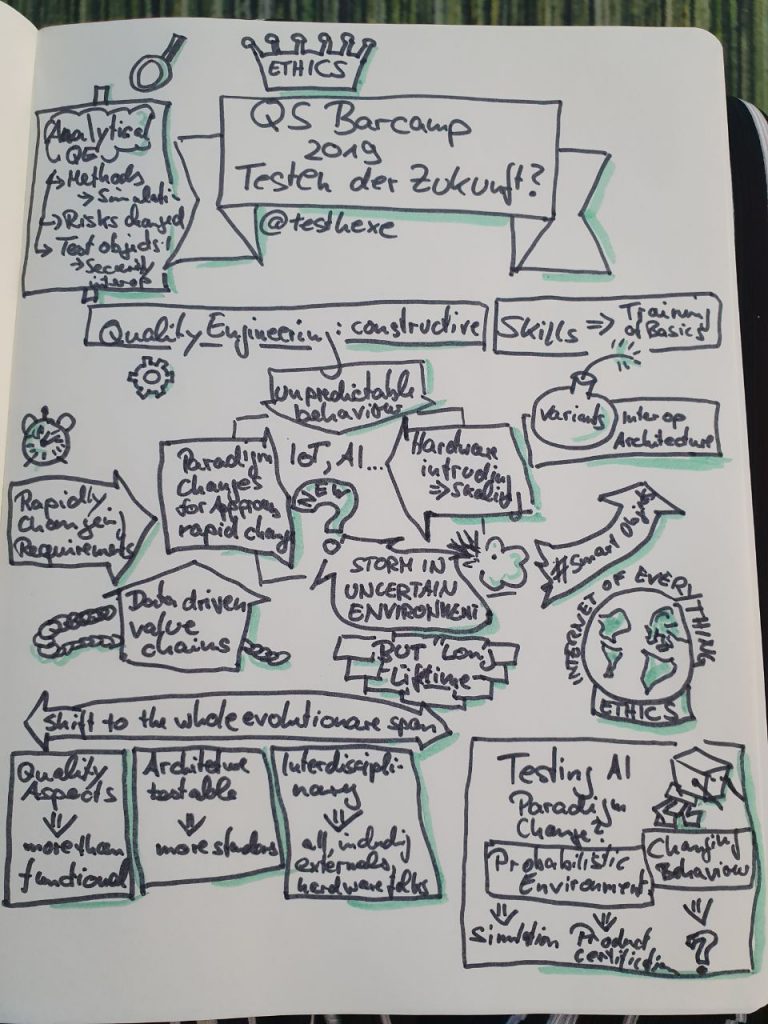 ETHICS
QS Barcamp
2019
Testen der Zukunft?
@testhexe
Analytical
QE
Methods
Risks changed
Test objects!
Security
interop
Quality Engineering: constructive
Skills ⇒ Training
of Basics
Unpredictable
behaviour
Variants
Interop
Architecture
Rapidly
Changing
Requirements
Paradigm
Changes
for
rapid change
IoT, AI...
NEW
?
Hardware
intruding
⇒ Scaling
STORM IN
UNCERTAIN
ENVIRONMENT
#Smart Objects
Data driven
value
chains
BUT "Long
Lifetime
INTERNET OF EVERYTHING
ETHICS
Shift to the whole evolutionare span
Quality
Aspects
⇓
more than
functional
Architecture
testable
⇓
more standards
Interdiscipli-
nary
⇓
all, including
externals,
hardware folks
Testing AI
Paradigm
Change?
Probabilistic
Environment
Simulation
Product
certification
Changing
Behaviour
⇓
?